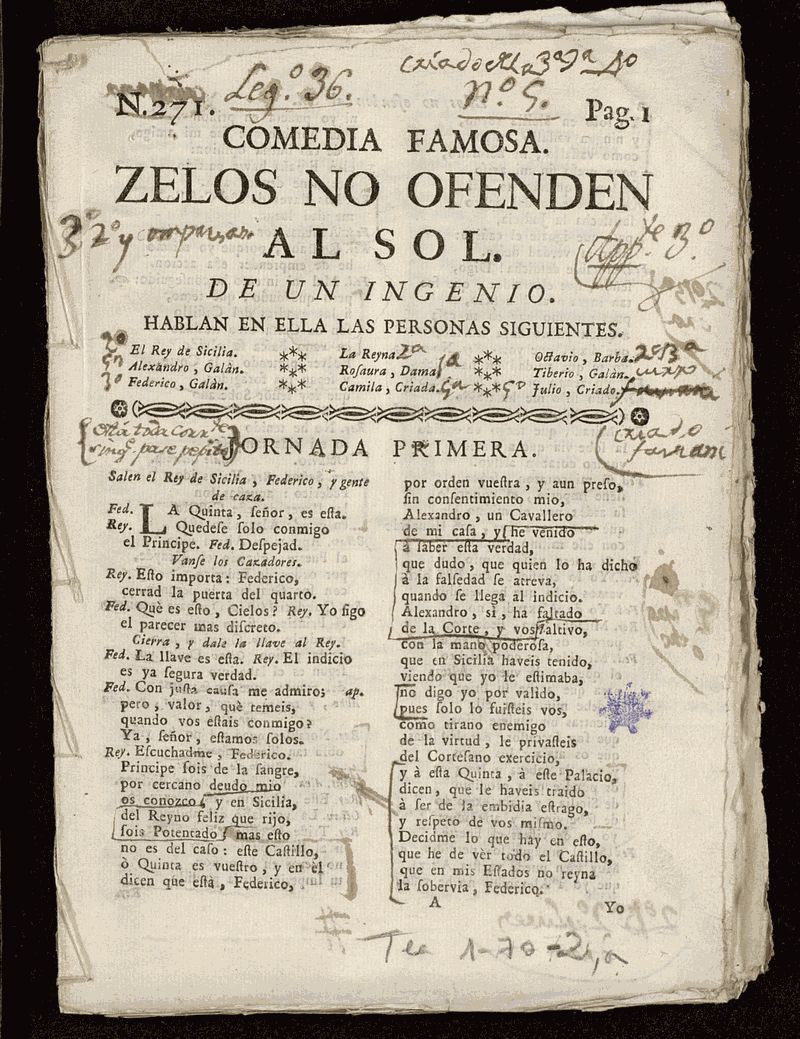 criado
N. 271.
Leg.º 36.
Nº 5.
Pag. 1
COMEDIA FAMOSA.
ZELOS NO OFENDEN
AL SOL.
3º 2º y comparsas
Appte 3º
DE UN INGENIO.
HABLAN EN ELLA LAS PERSONAS SIGUIENTES.
El Rey de Sicilia.
Alexandro, Galàn.
Federico, Galàn.
La Reyna. 2ª
Rosaura, Dama. 1ª
Camila, Criada. 5ª
Octavio, Barba.
Tiberio, Galàn.
Julio, Criado.
JORNADA PRIMERA.
criado
Salen el Rey de Sicilia, Federico, y gente
de caza.
Fed. LA Quinta, ſeñor, es eſta.
Rey. Quedeſe ſolo conmigo
el Principe. Fed. Deſpejad.
Vanſe los Cazadores.
Rey. Eſto importa: Federico,
cerrad la puerta del quarto.
Fed. Què es eſto, Cielos? Rey. Yo ſigo
el parecer mas diſcreto.
Cierra, y dale la llave al Rey.
Fed. La llave es eſta. Rey. El indicio
es ya ſegura verdad.
Fed. Con juſta cauſa me admiro; ap.
pero, valor, què temeis,
quando vos eſtais conmigo?
Ya, ſeñor, eſtamos ſolos.
Rey. Eſcuchadme, Federico.
Principe ſois de la ſangre,
por cercano deudo mio
os conozco, y en Sicilia,
del Reyno feliz que rijo,
ſois Potentado; mas eſto
no es del caſo: eſte Caſtillo,
ò Quinta es vueſtro, y en èl
dicen que eſtà, Federico,
por orden vueſtra, y aun preſo,
ſin conſentimiento mio,
Alexandro, un Cavallero
de mi caſa, y he venido
à ſaber eſta verdad,
que dudo, que quien lo ha dicho
à la falſedad ſe atreva,
quando ſe llega al indicio.
Alexandro, sì, ha faltado
de la Corte, y vos altivo,
con la mano poderoſa,
que en Sicilia haveis tenido,
viendo que yo le eſtimaba,
no digo yo por valido,
pues ſolo lo fuiſteis vos,
como tirano enemigo
de la virtud, le privaſteis
del Corteſano exercicio,
y à eſta Quinta, à eſte Palacio,
dicen, que le haveis traido
à ſer de la embidia eſtrago,
y reſpeto de vos miſmo.
Decidme lo que hay en eſto,
que he de vèr todo el Caſtillo,
que en mis Eſtados no reyna
la ſobervia, Federico.
A
Yo
Tea 1-70-2, a